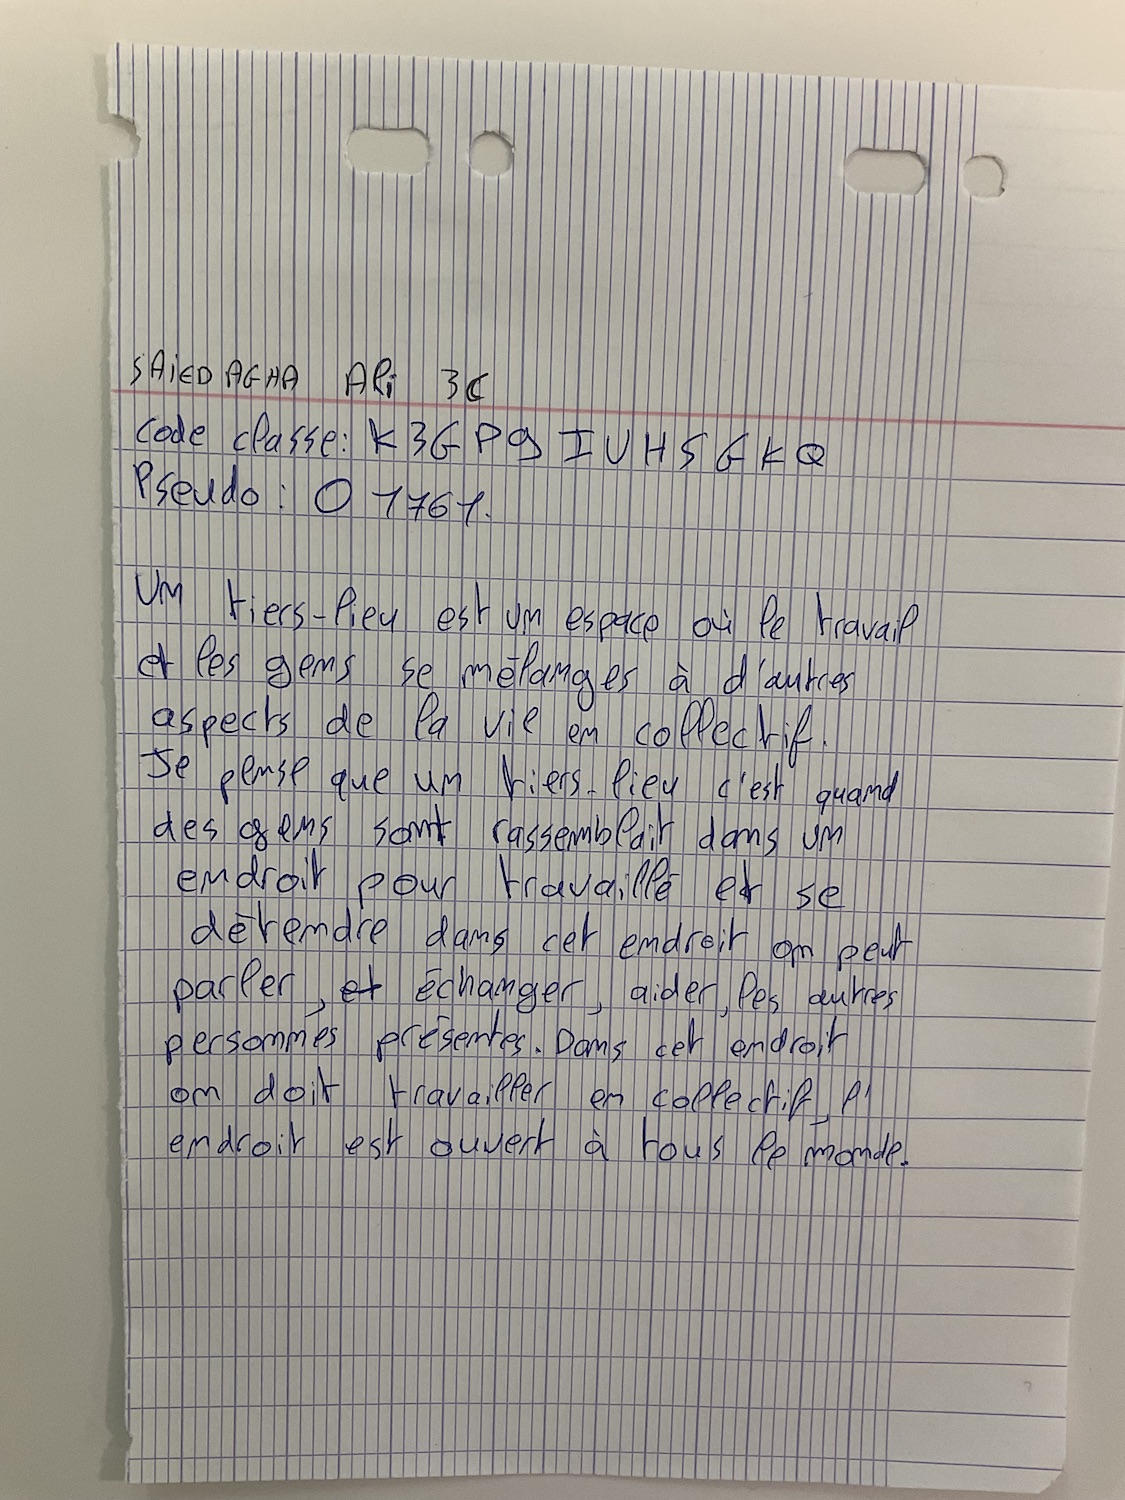 SAiED AGHA Ali 3C
Code classe: K3GP9IUHSGKQ
Pseudo: O 1761.
Un tiers-lieu est un espace où le travail
et les gens se mélanges à d'autres
aspects de la vie en collectif.
Je pense que un tiers-lieu c'est quand
des gens sont rassemblait dans un
endroit pour travaillé et se
détendre dans cet endroit on peut
parler, et échanger, aider, les autres
personnes présentes. Dans cet endroit
on doit travailler en collectif, l'
endroit est ouvert à tous le monde.